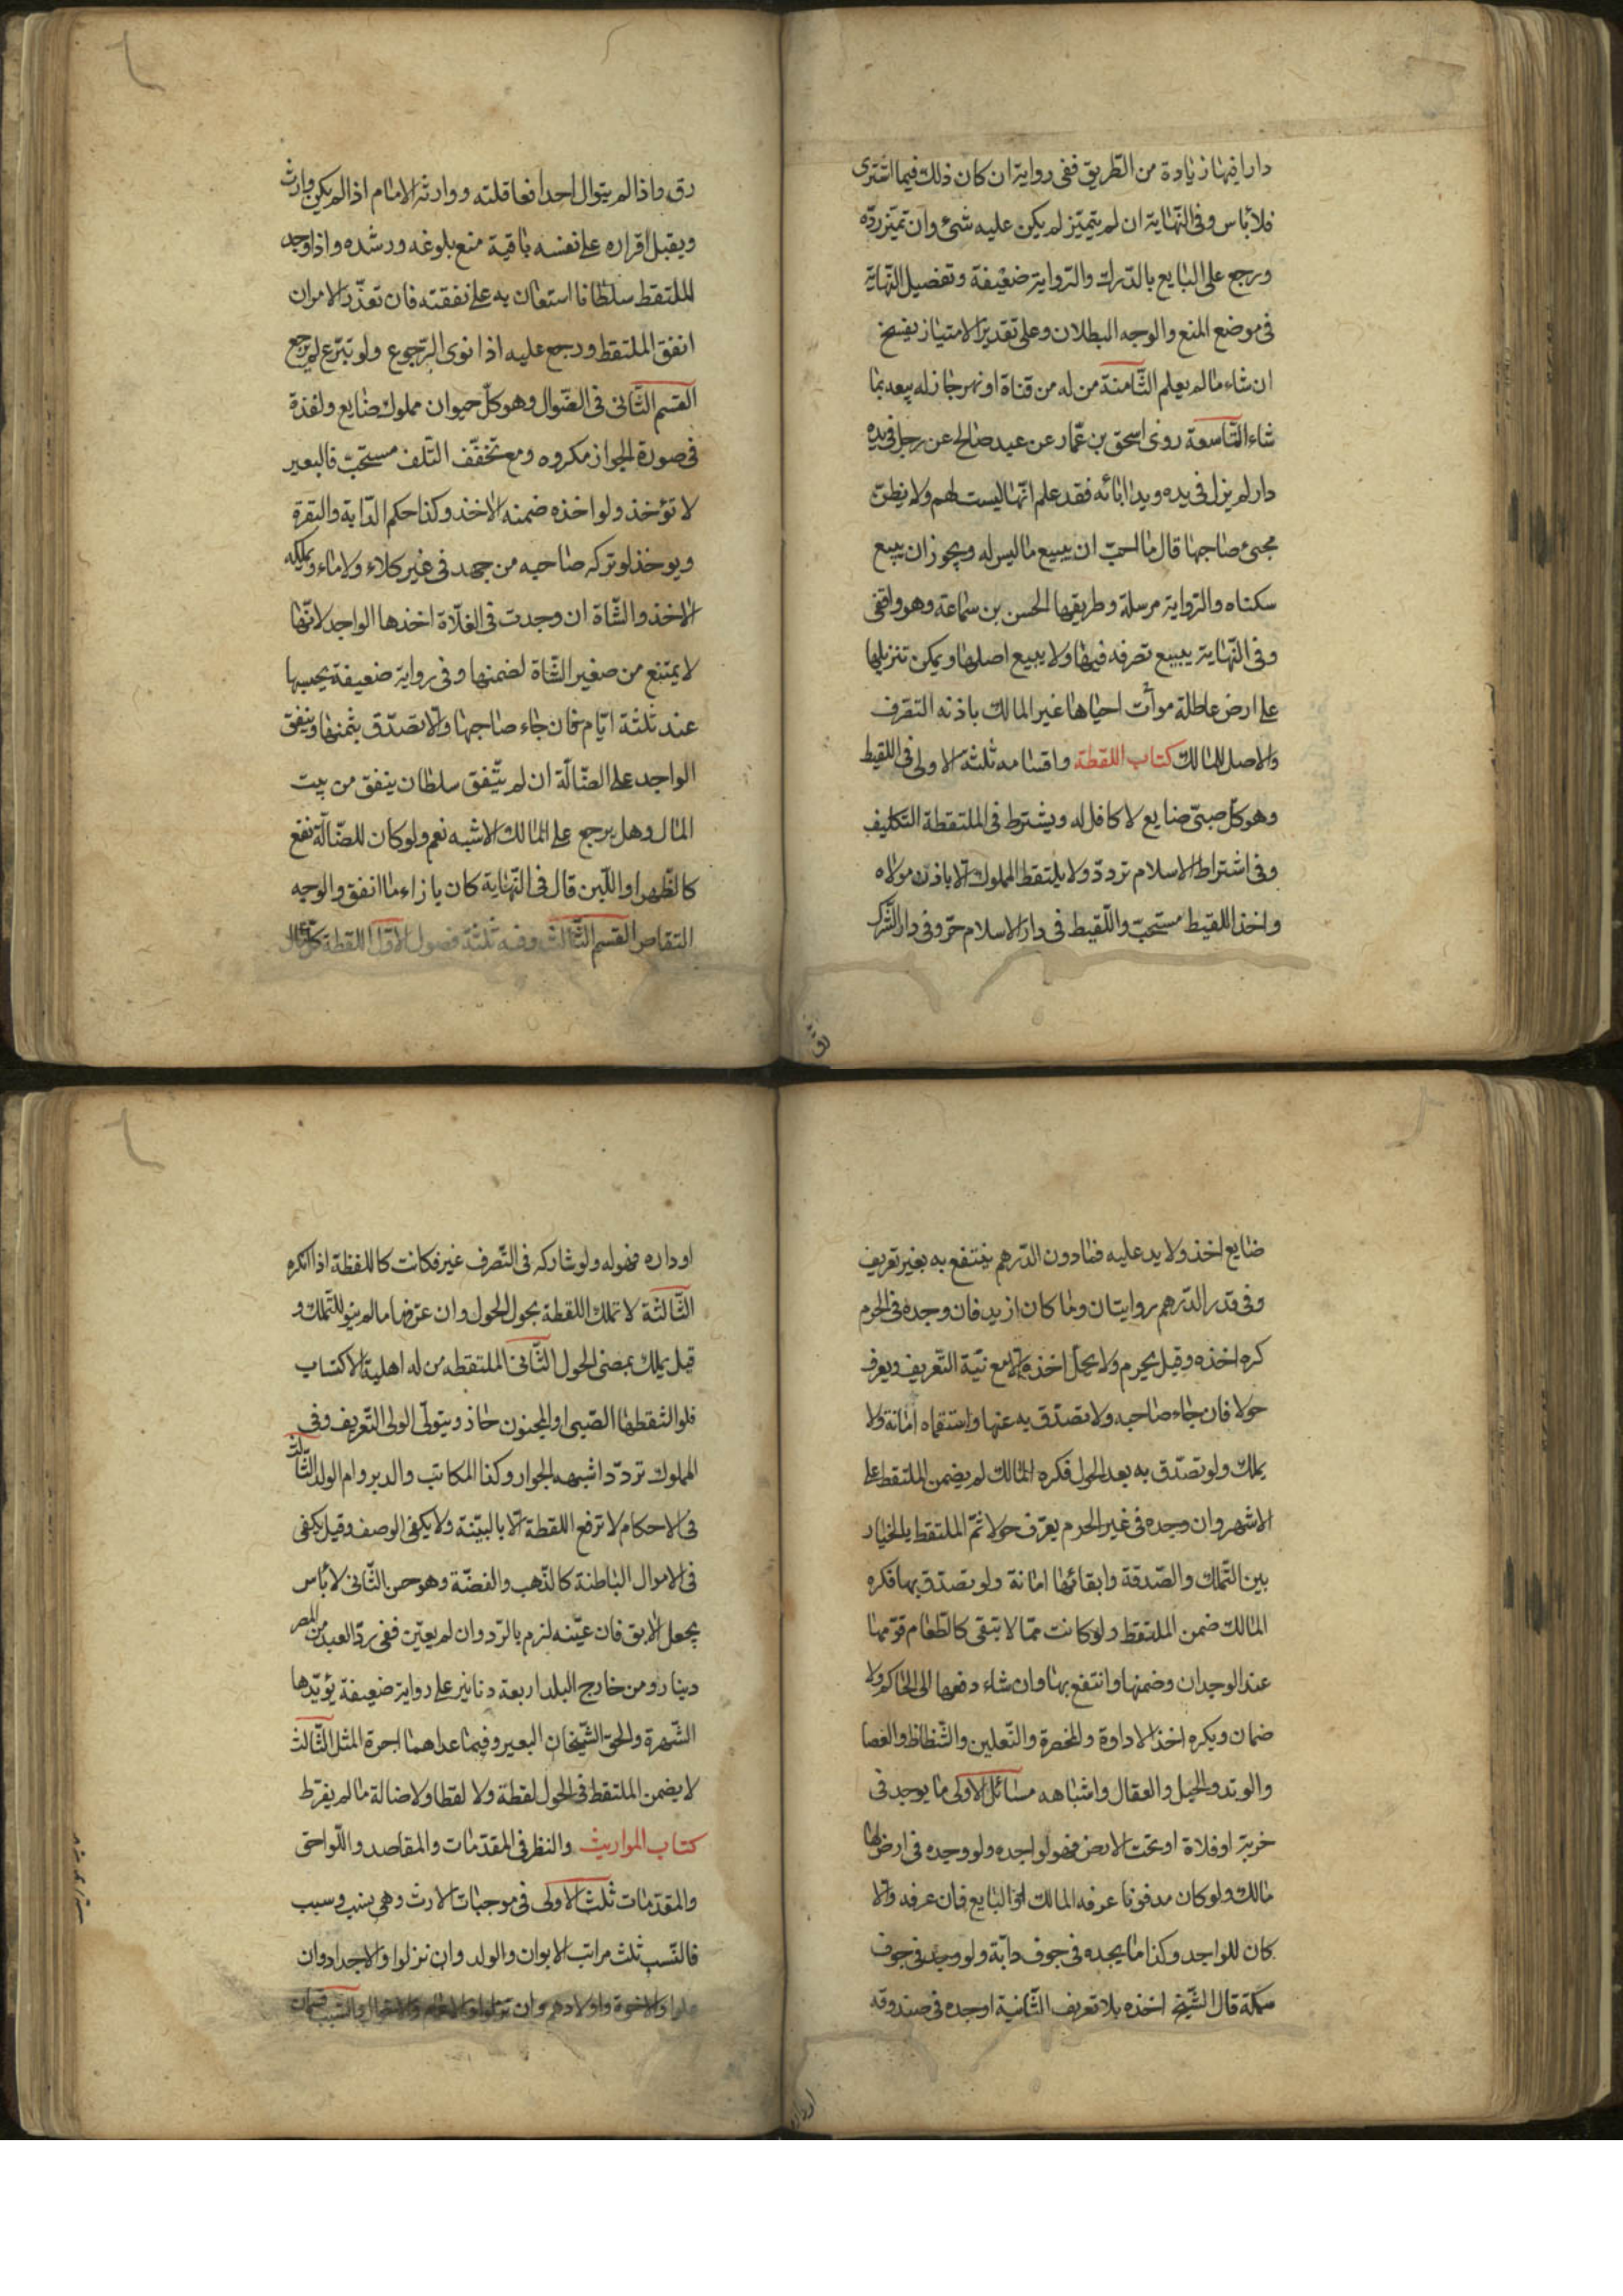 دارا فيها زيادة من الطريق ففى رواية ان كان ذلك فيما اشترى
فلا باس وفى النهاية ان لم يتميز لم يكن عليه شئ وان تميز رده
ورجع على البايع بالدرك والرواية ضعيفة وتفصيل النهاية
فى موضع المنع والوجه البطلان وعلى تقدير الامتياز يفسخ
ان شاء مالم يعلم الثامنة من له من قناة او نهر جاز له بيعه بما
شاء التاسعة روى اسحق بن عمار عن عبد صالح عن رجل فى يده
دار لم يزل فى يده ويد ابائه فقد علم انها ليست لهم ولا يظن
مجئ صاحبها قال ما احب ان يبيع ما ليس له ويجوز ان يبيع
سكناه والرواية مرسلة وطريقها الحسن بن سماعة وهو واقفى
وفى النهاية يبيع تصرفه فيها ولا يبيع اصلها ويمكن تنزيلها
على ارض عاطلة موات احياها غير المالك باذنه التصرف
والاصل للمالك كتاب اللقطة واقسامه ثلثة الاولى فى اللقيط
وهو كل صبى ضايع لا كافل له ويشترط فى الملتقطة التكليف
وفى اشتراط الاسلام تردد ولا يلتقط المملوك الا باذن مولاه
واخذ اللقيط مستحب واللقيط فى دار الاسلام حر وفى دار الشرك
رق
رق واذا لم يتوال احدا فعاقلته ووارثه الامام اذا لم يكن وارث
ويقبل اقراره على نفسه باقية منع بلوغه ورشده واذا وجد
للملتقط سلطانا استعان به على نفقته فان تعذر الامران
انفق الملتقط ورجع عليه اذا نوى الرجوع ولو تبرع لم يرجع
القسم الثانى فى الضوال وهو كل حيوان مملوك ضايع ولقذة
فى صورة الجواز مكروه ومع تخفف التلف مستحب فالبعير
لا تؤخذ ولو اخذه ضمنه الاخذ وكذا حكم الدابة والبقرة
ويوخذ لو تركه صاحبه من جهد فى غير كلاء ولا ماء ويملكه
الاخذ والشاة ان وجدت فى الفلاة اخذها الواجد لانها
لا يمتنع من صغير الشاة لضمنها وفى رواية ضعيفة يحبسها
عند ثلثة ايام فان جاء صاحبها والا تصدق بثمنها وينفق
الواجد على الضالة ان لم يتفق سلطان ينفق من بيت
المال وهل يرجع على المالك الاشبه نعم ولو كان للضالة نفع
كالظهر او اللبن قال فى النهاية كان بازاء ما انفق والوجه
التقاص القسم الثالث وفيه ثلثة فصول الاول اللقطة كل مال
ضايع اخذ ولا يد عليه فما دون الدرهم ينتفع به بغير تعريف
وفى قدر الدرهم روايتان وما كان ازيد فان وجده فى الحرم
كره اخذه وقيل يحرم ولا يحل اخذه الا مع نية التعريف ويعرف
حولا فان جاء صاحبه ولا تصدق به عنها واستقماه امانة ولا
يملك ولو تصدق به بعد الحول فكره المالك لم يضمن الملتقط على
الاشهر وان وجده فى غير الحرم يعرف حولا ثم الملتقط بالخيار
بين التملك والصدقة وابقائها امانة ولو تصدق بها فكره
المالك ضمن الملتقط ولو كانت مما لا تبقى كالطعام قومها
عند الوجدان وضمنها وانتفع بها وان شاء دفعها الى الحاكم ولا
ضمان ويكره اخذ الاداوة والمخصرة والنعلين والشظاظ والعصا
والوتد والحبل والعقال واشباهه مسائل الاولى ما يوجد فى
خربة او فلاة او تحت الارض فهو لواجده ولو وجده فى ارض لها
مالك ولو كان مدفونا عرفه المالك او البايع فان عرفه والا
كان للواجد وكذا ما يجده فى جوف دابة ولو وجد فى جوف
سمكة قال الشيخ اخذه بلا تعريف الثانية اوجده فى صندوقه
او داره
او داره فهو له ولو شاركه فى التصرف غير فكانت كاللقطة اذا انكره
الثالثة لا تملك اللقطة بحول الحول وان عرفها مالم ينو للتملك و
قيل يملك بمضى الحول الثانى الملتقطه من له اهلية الاكتساب
فلو التقطها الصبى او المجنون جاز ويتولى الولى التعريف وفى
المملوك تردد اشبهه الجواز وكذا المكاتب والمدبر وام الولد الثالث
فى الاحكام لا ترفع اللقطة الا بالبينة ولا يكفى الوصف وقيل يكفى
فى الاموال الباطنة كالذهب والفضة وهو حسن الثانى لا باس
بجعل الابق فان عينه لزم بالرد وان لم يعين ففى رد العبد من المصر
دينار ومن خارج البلد اربعة دنانير على رواية ضعيفة يؤيدها
الشهرة والحق الشيخان البعير وفيما عداهما اجرة المثل الثالث
لا يضمن الملتقط فى الحول لقطة ولا لقطا ولا ضالة مالم يفرط
كتاب المواريث والنظر فى المقدمات والمقاصد واللواحق
والمقدمات ثلث الاولى فى موجبات الارث وهى نسب وسبب
فالنسب ثلث مراتب الابوان والولد وان نزلوا والاجداد وان
علوا والاخوة واولادهم وان نزلوا والاعمام والاخوال والسبب قسمان